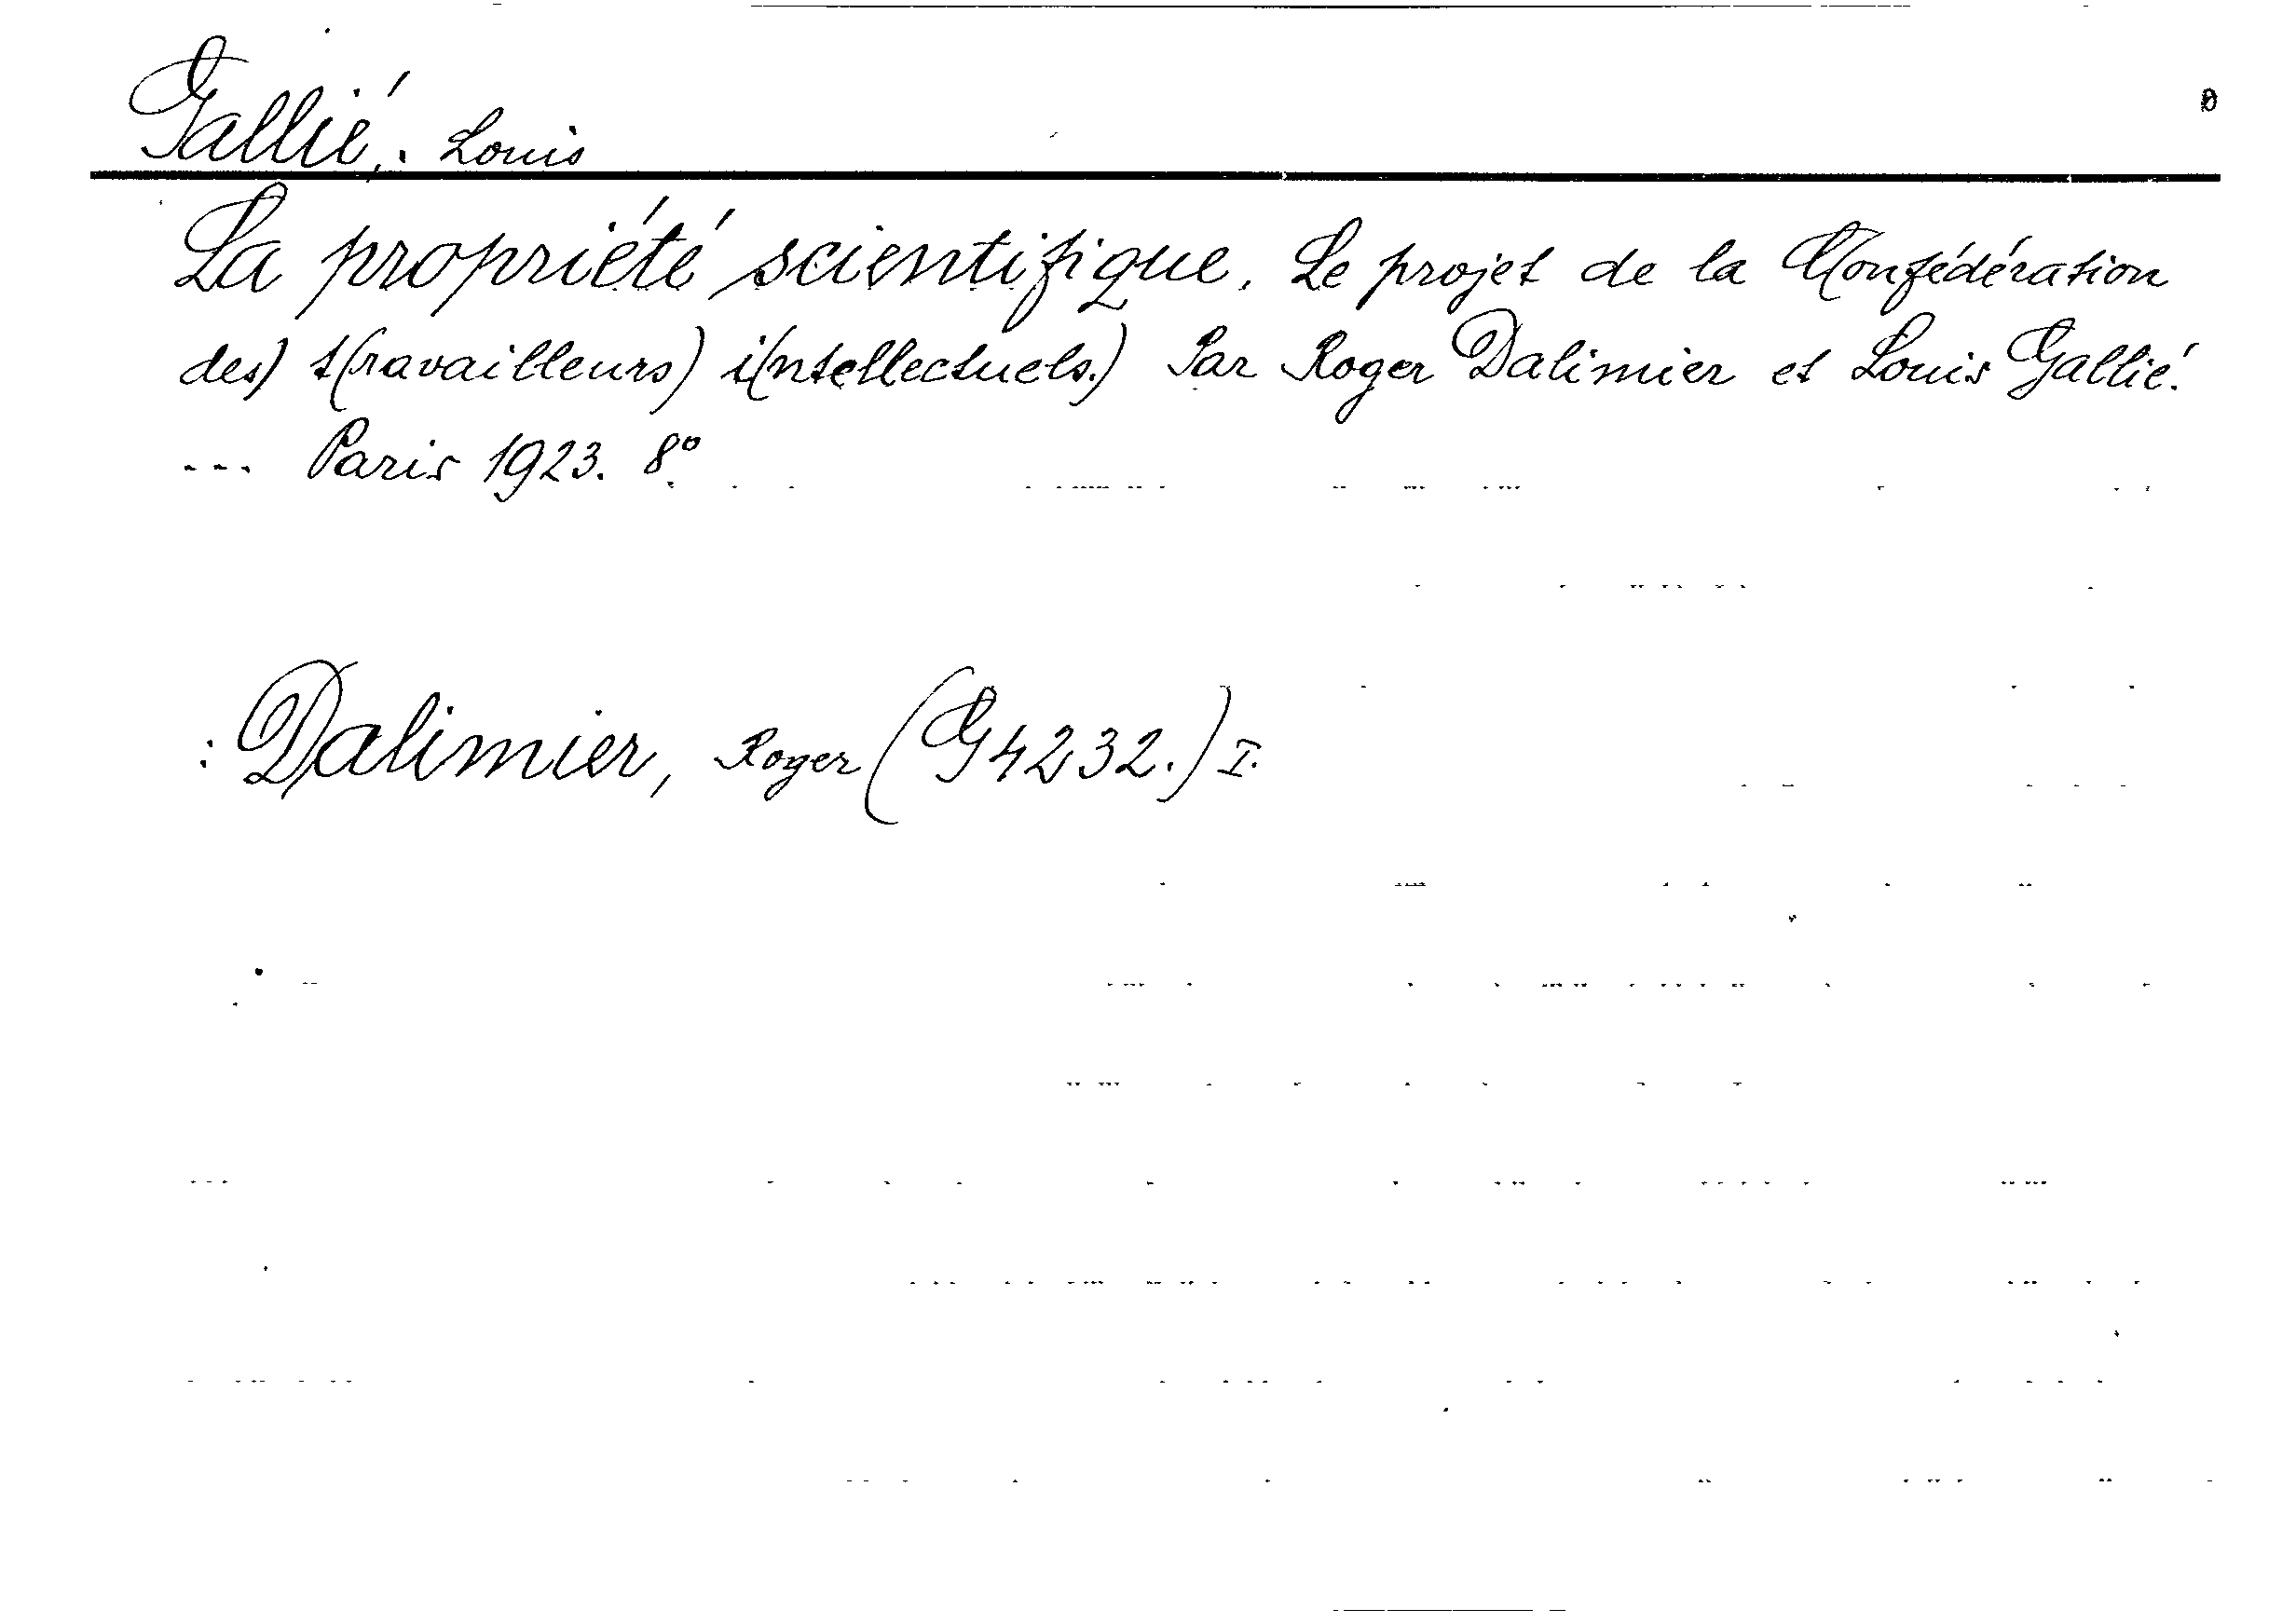 Gallié, : Louis
La propriété scientifique. Le projet de la C(onfédération
des) t(ravailleurs) i(ntellectuels.) Par Roger Dalimier et Louis Gallié.
--- Paris 1923. 8°
: Dalimier, Roger (G4232.) I.